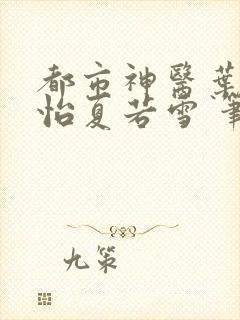 都市神醫葉
怡夏若雪 筆
九策